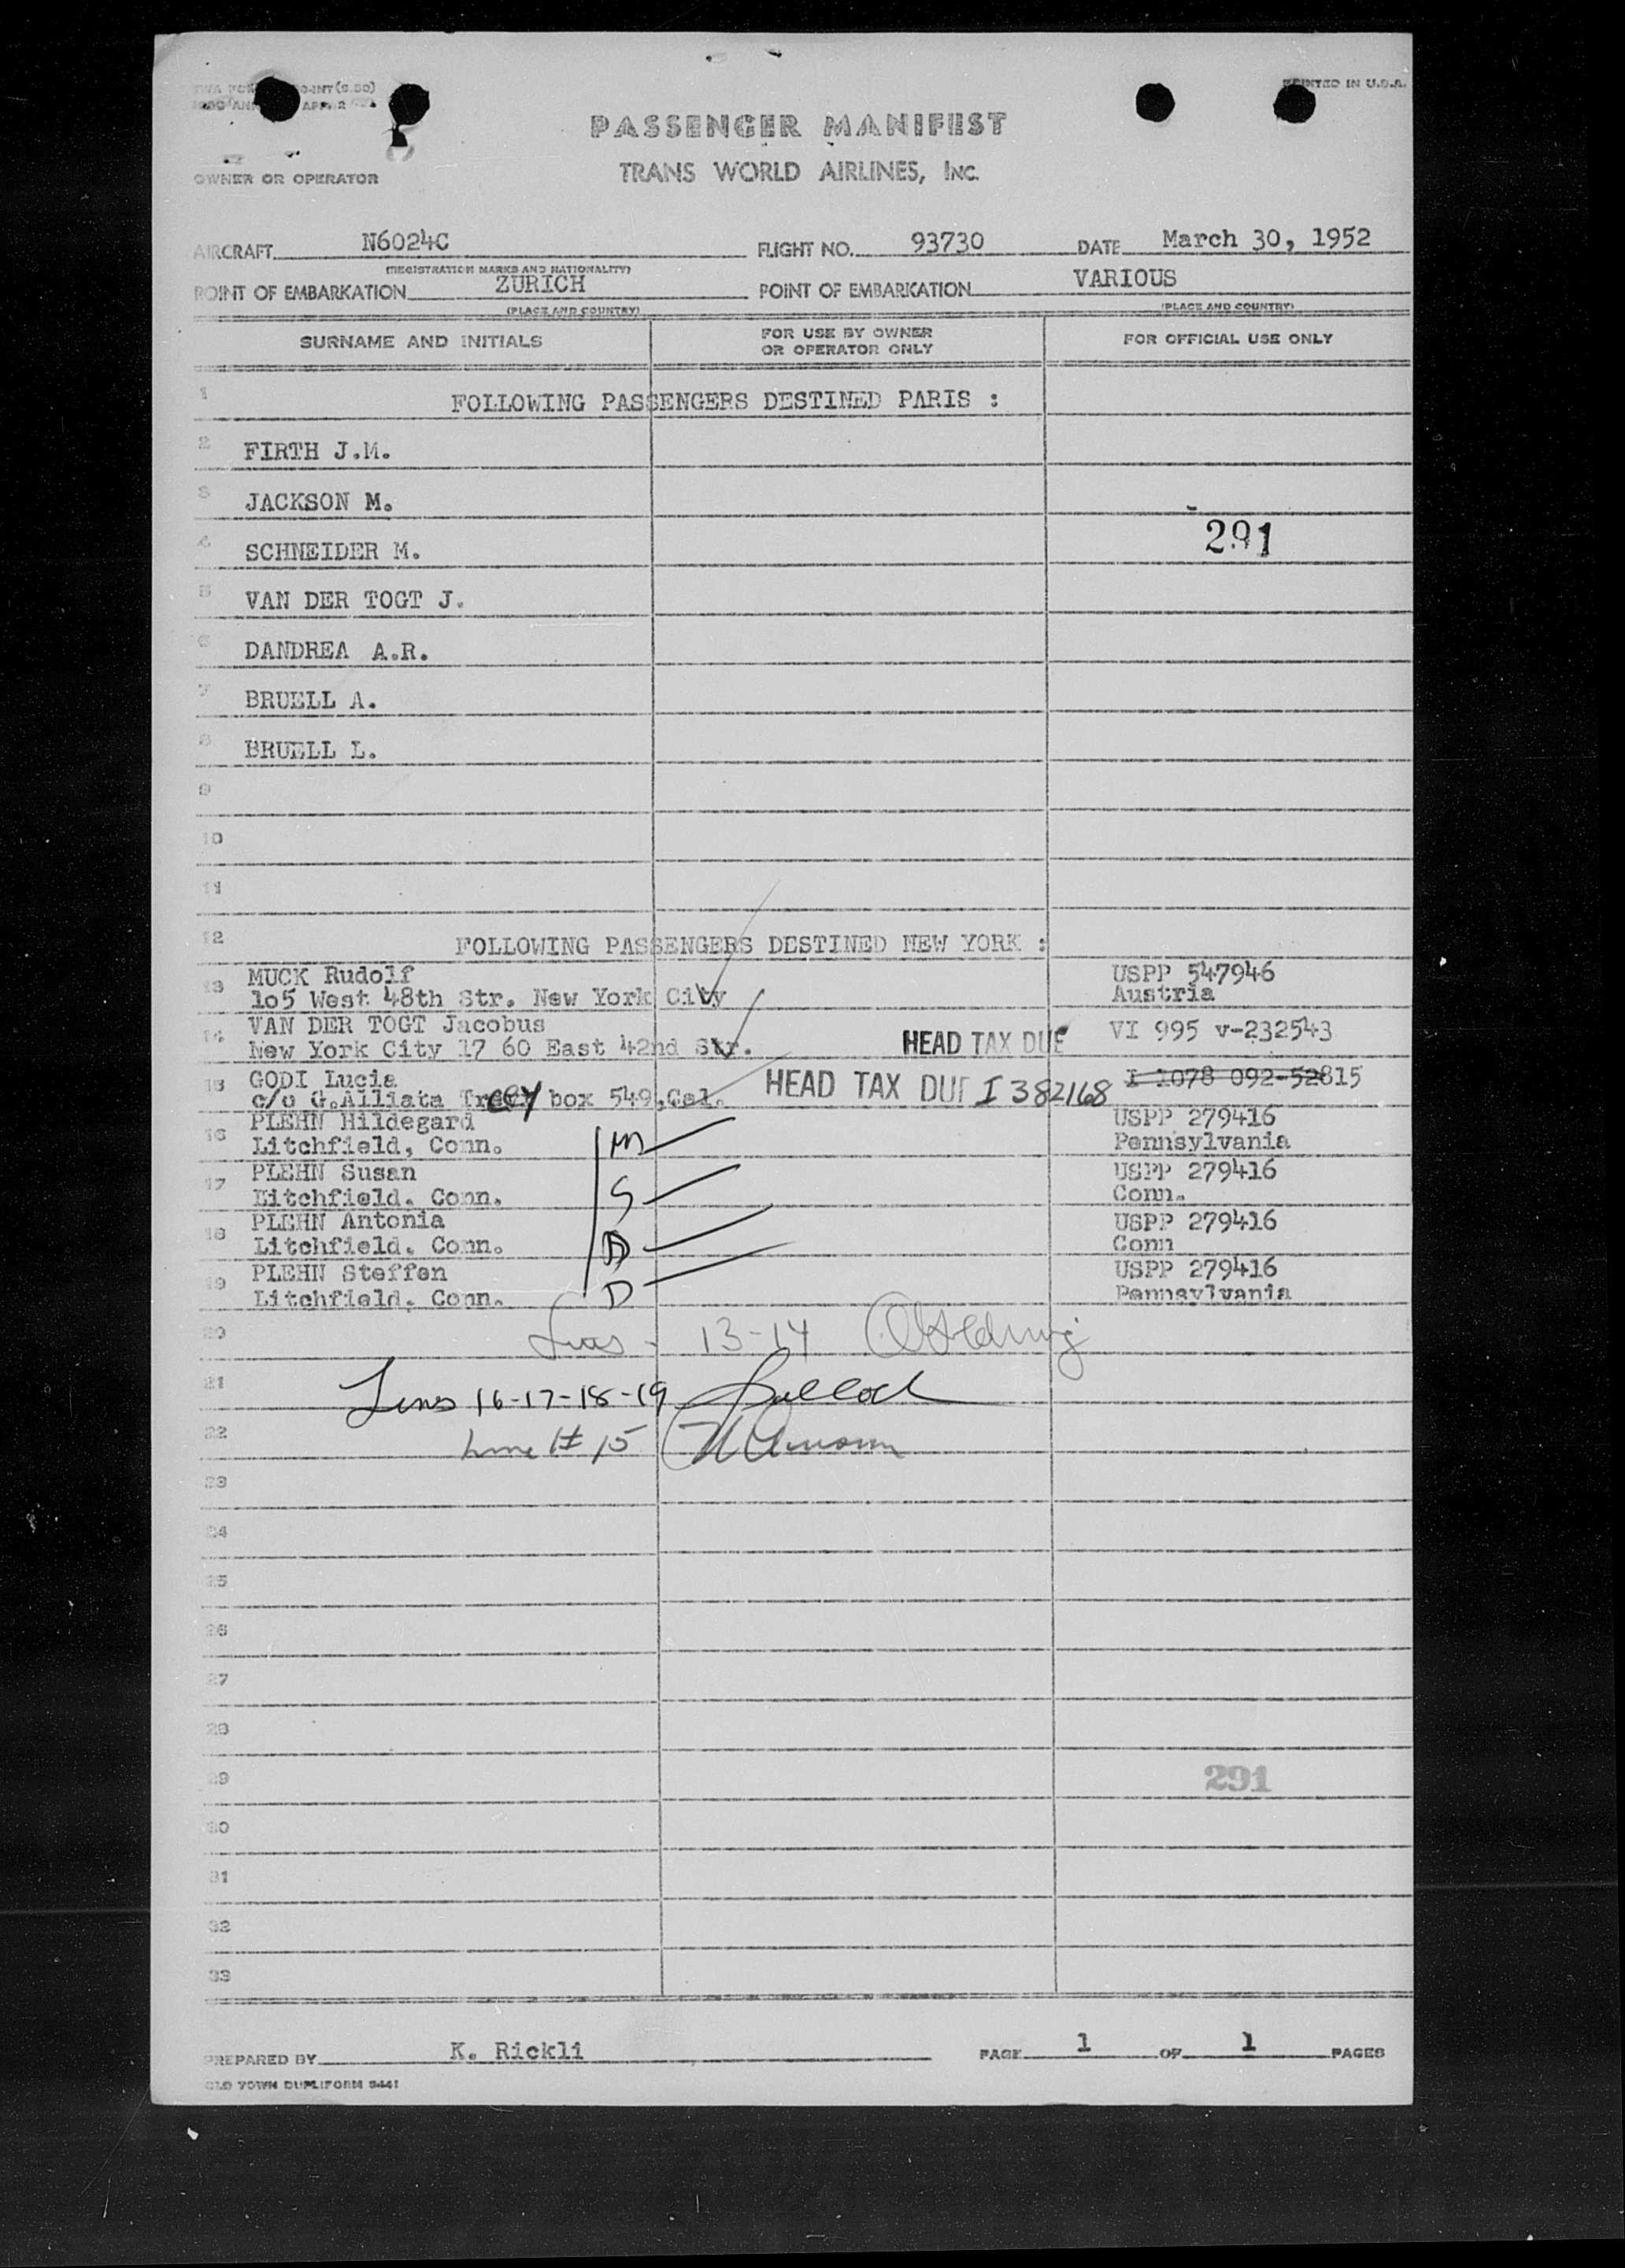 PRINTED IN U.S.A.
PASSENGER MANIFEST
TRANS WORLD AIRLINES, INC.
OWNER OR OPERATOR
AIRCRAFT N6024C FLIGHT NO. 93730 DATE March 30, 1952
(REGISTRATION MARKS AND NATIONALITY)
POINT OF EMBARKATION ZURICH POINT OF EMBARKATION VARIOUS
(PLACE AND COUNTRY) (PLACE AND COUNTRY)
SURNAME AND INITIALS FOR USE BY OWNER OR OPERATOR ONLY FOR OFFICIAL USE ONLY
1 FOLLOWING PASSENGERS DESTINED PARIS :
2 FIRTH J.M.
3 JACKSON M.
4 SCHNEIDER M. 291
5 VAN DER TOGT J.
6 DANDREA A.R.
7 BRUELL A.
8 BRUELL L.
9
10
11
12 FOLLOWING PASSENGERS DESTINED NEW YORK :
13 MUCK Rudolf USPP 547946
1o5 West 48th Str. New York City Austria
14 VAN DER TOGT Jacobus VI 995 v-232543
New York City 17 60 East 42nd Str. HEAD TAX DUE
15 GODI Lucia I 1078 092-52815
c/o G.Alliata Tracy box 549,Cal. HEAD TAX DUE I 382168
16 PLEHN Hildegard USPP 279416
Litchfield, Conn. M Pennsylvania
17 PLEHN Susan USPP 279416
Litchfield. Conn. S Conn.
18 PLEHN Antonia USPP 279416
Litchfield. Conn. D Conn
19 PLEHN Steffen USPP 279416
Litchfield. Conn. D Pennsylvania
20 13-14
21 Lines 16-17-18-19
22 Line # 15
23
24
25
26
27
28
29 291
30
31
32
33
PREPARED BY K. Rickli PAGE 1 OF 1 PAGES
OLD TOWN DUPLIFORM 9441